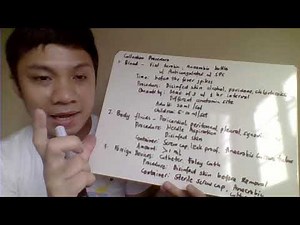 Collection Procedure
1. Blood - First aerobic anaerobic bottle
w/ Anticoagulated of SPS
Time: before the fever spikes
Procedure: Disinfect skin alcohol, povidone, chlorhexidine
Quantity: hour interval
Different venipuncture site
Adult: 20ml / set
Children: 5-10 ml / set
2. Body fluids - Pericardial, peritoneal, pleural, synovial
Procedure: Needle Aspiration
Disinfect skin
Container: Screw cap, leak proof, Anaerobic
Amount: > 1 ml
3. Foreign Devices: Catheter, Foley
Procedure: Disinfect skin before removal
Container: Sterile screw cap,